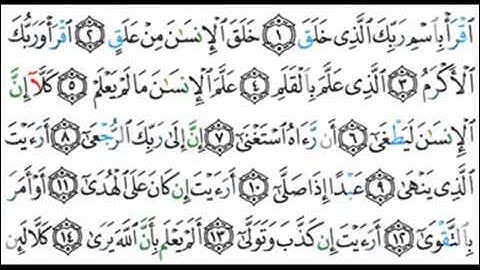 ٱقْرَأْ بِٱسْمِ رَبِّكَ ٱلَّذِى خَلَقَ ١ خَلَقَ ٱلْإِنسَـٰنَ مِنْ عَلَقٍ ٢ ٱقْرَأْ وَرَبُّكَ
ٱلْأَكْرَمُ ٣ ٱلَّذِى عَلَّمَ بِٱلْقَلَمِ ٤ عَلَّمَ ٱلْإِنسَـٰنَ مَا لَمْ يَعْلَمْ ٥ كَلَّآ إِنَّ
ٱلْإِنسَـٰنَ لَيَطْغَىٰٓ ٦ أَن رَّءَاهُ ٱسْتَغْنَىٰٓ ٧ إِنَّ إِلَىٰ رَبِّكَ ٱلرُّجْعَىٰٓ ٨ أَرَءَيْتَ
ٱلَّذِى يَنْهَىٰ ٩ عَبْدًا إِذَا صَلَّىٰٓ ١٠ أَرَءَيْتَ إِن كَانَ عَلَى ٱلْهُدَىٰٓ ١١ أَوْ أَمَرَ
بِٱلتَّقْوَىٰٓ ١٢ أَرَءَيْتَ إِن كَذَّبَ وَتَوَلَّىٰٓ ١٣ أَلَمْ يَعْلَم بِأَنَّ ٱللَّهَ يَرَىٰ ١٤ كَلَّا لَئِن